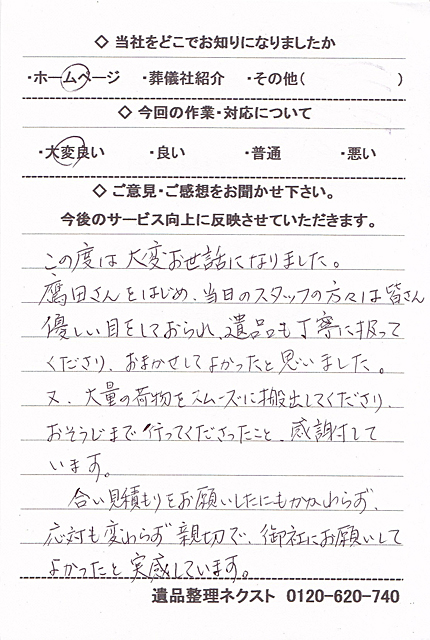 ◇ 当社をどこでお知りになりましたか
・ホームページ ・葬儀社紹介 ・その他( )
◇ 今回の作業・対応について
・大変良い ・良い ・普通 ・悪い
◇ ご意見・ご感想をお聞かせ下さい。
今後のサービス向上に反映させていただきます。
この度は大変お世話になりました。
鷹田さんをはじめ、当日のスタッフの方々は皆さん
優しい目をしておられ、遺品も丁寧に扱って
くださり、おまかせしてよかったと思いました。
又、大量の荷物をスムーズに搬出してくださり、
おそうじまで行ってくださったこと、感謝して
います。
合い見積もりをお願いしたにもかかわらず、
応対も変わらず親切で、御社にお願いして
よかったと実感しています。
遺品整理ネクスト 0120-620-740